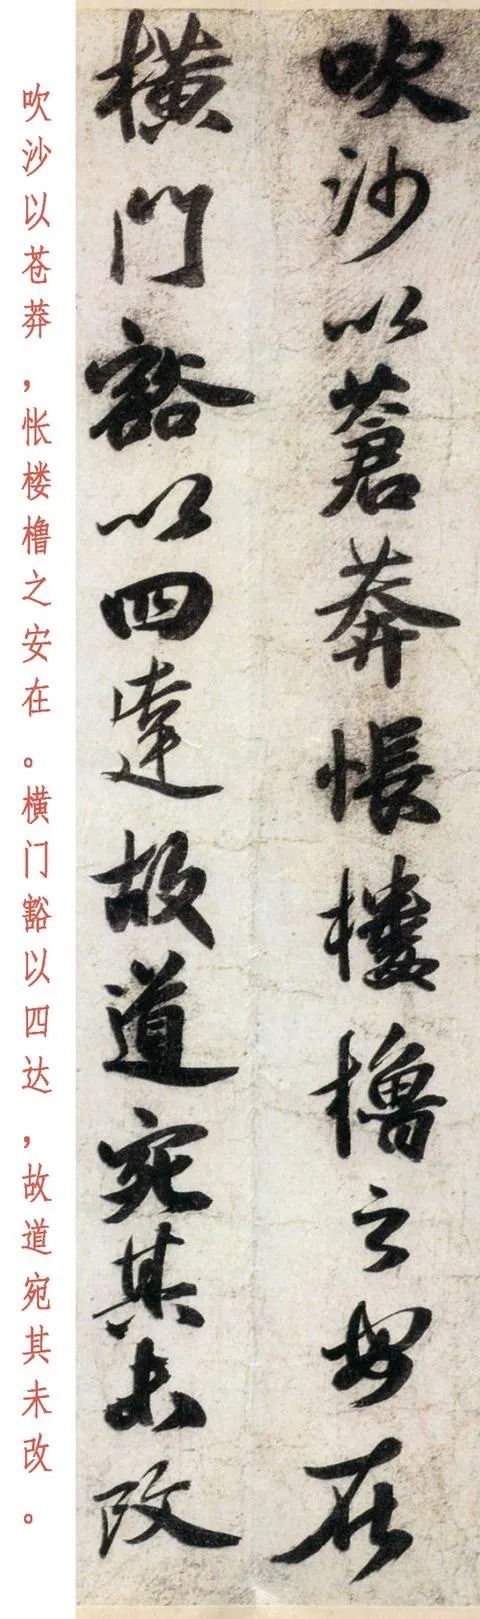 吹沙以蒼莽悵樓櫓之安在
橫門豁以四達故道宛其未改
吹沙以苍莽，怅楼橹之安在。横门豁以四达，故道宛其未改。